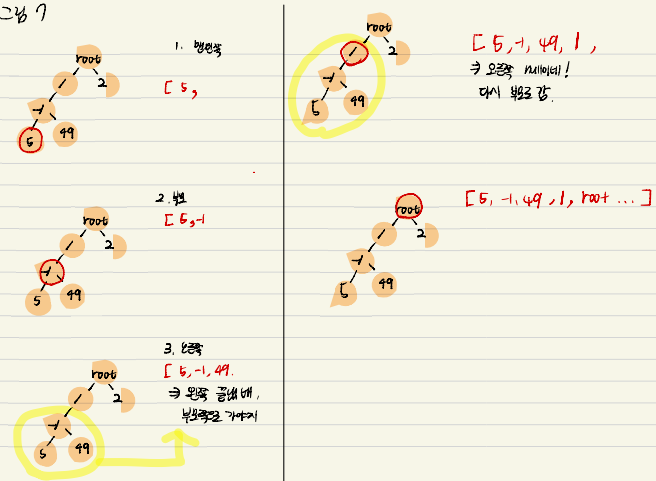 그림 7
root
/
2
-1
5
49
1. 맨왼쪽
[ 5,
root
/
2
-1
5
49
2. 부모
[ 5, -1
root
/
2
-1
5
49
3. 오른쪽
[ 5, -1, 49.
⇒ 왼쪽 끝냈네,
부모쪽으로 가야지
root
/
2
-1
5
49
[ 5, -1, 49, 1,
⇒ 오른쪽 없네!
다시 부모로 감.
root
/
2
-1
5
49
[ 5, -1, 49, 1, root ... ]